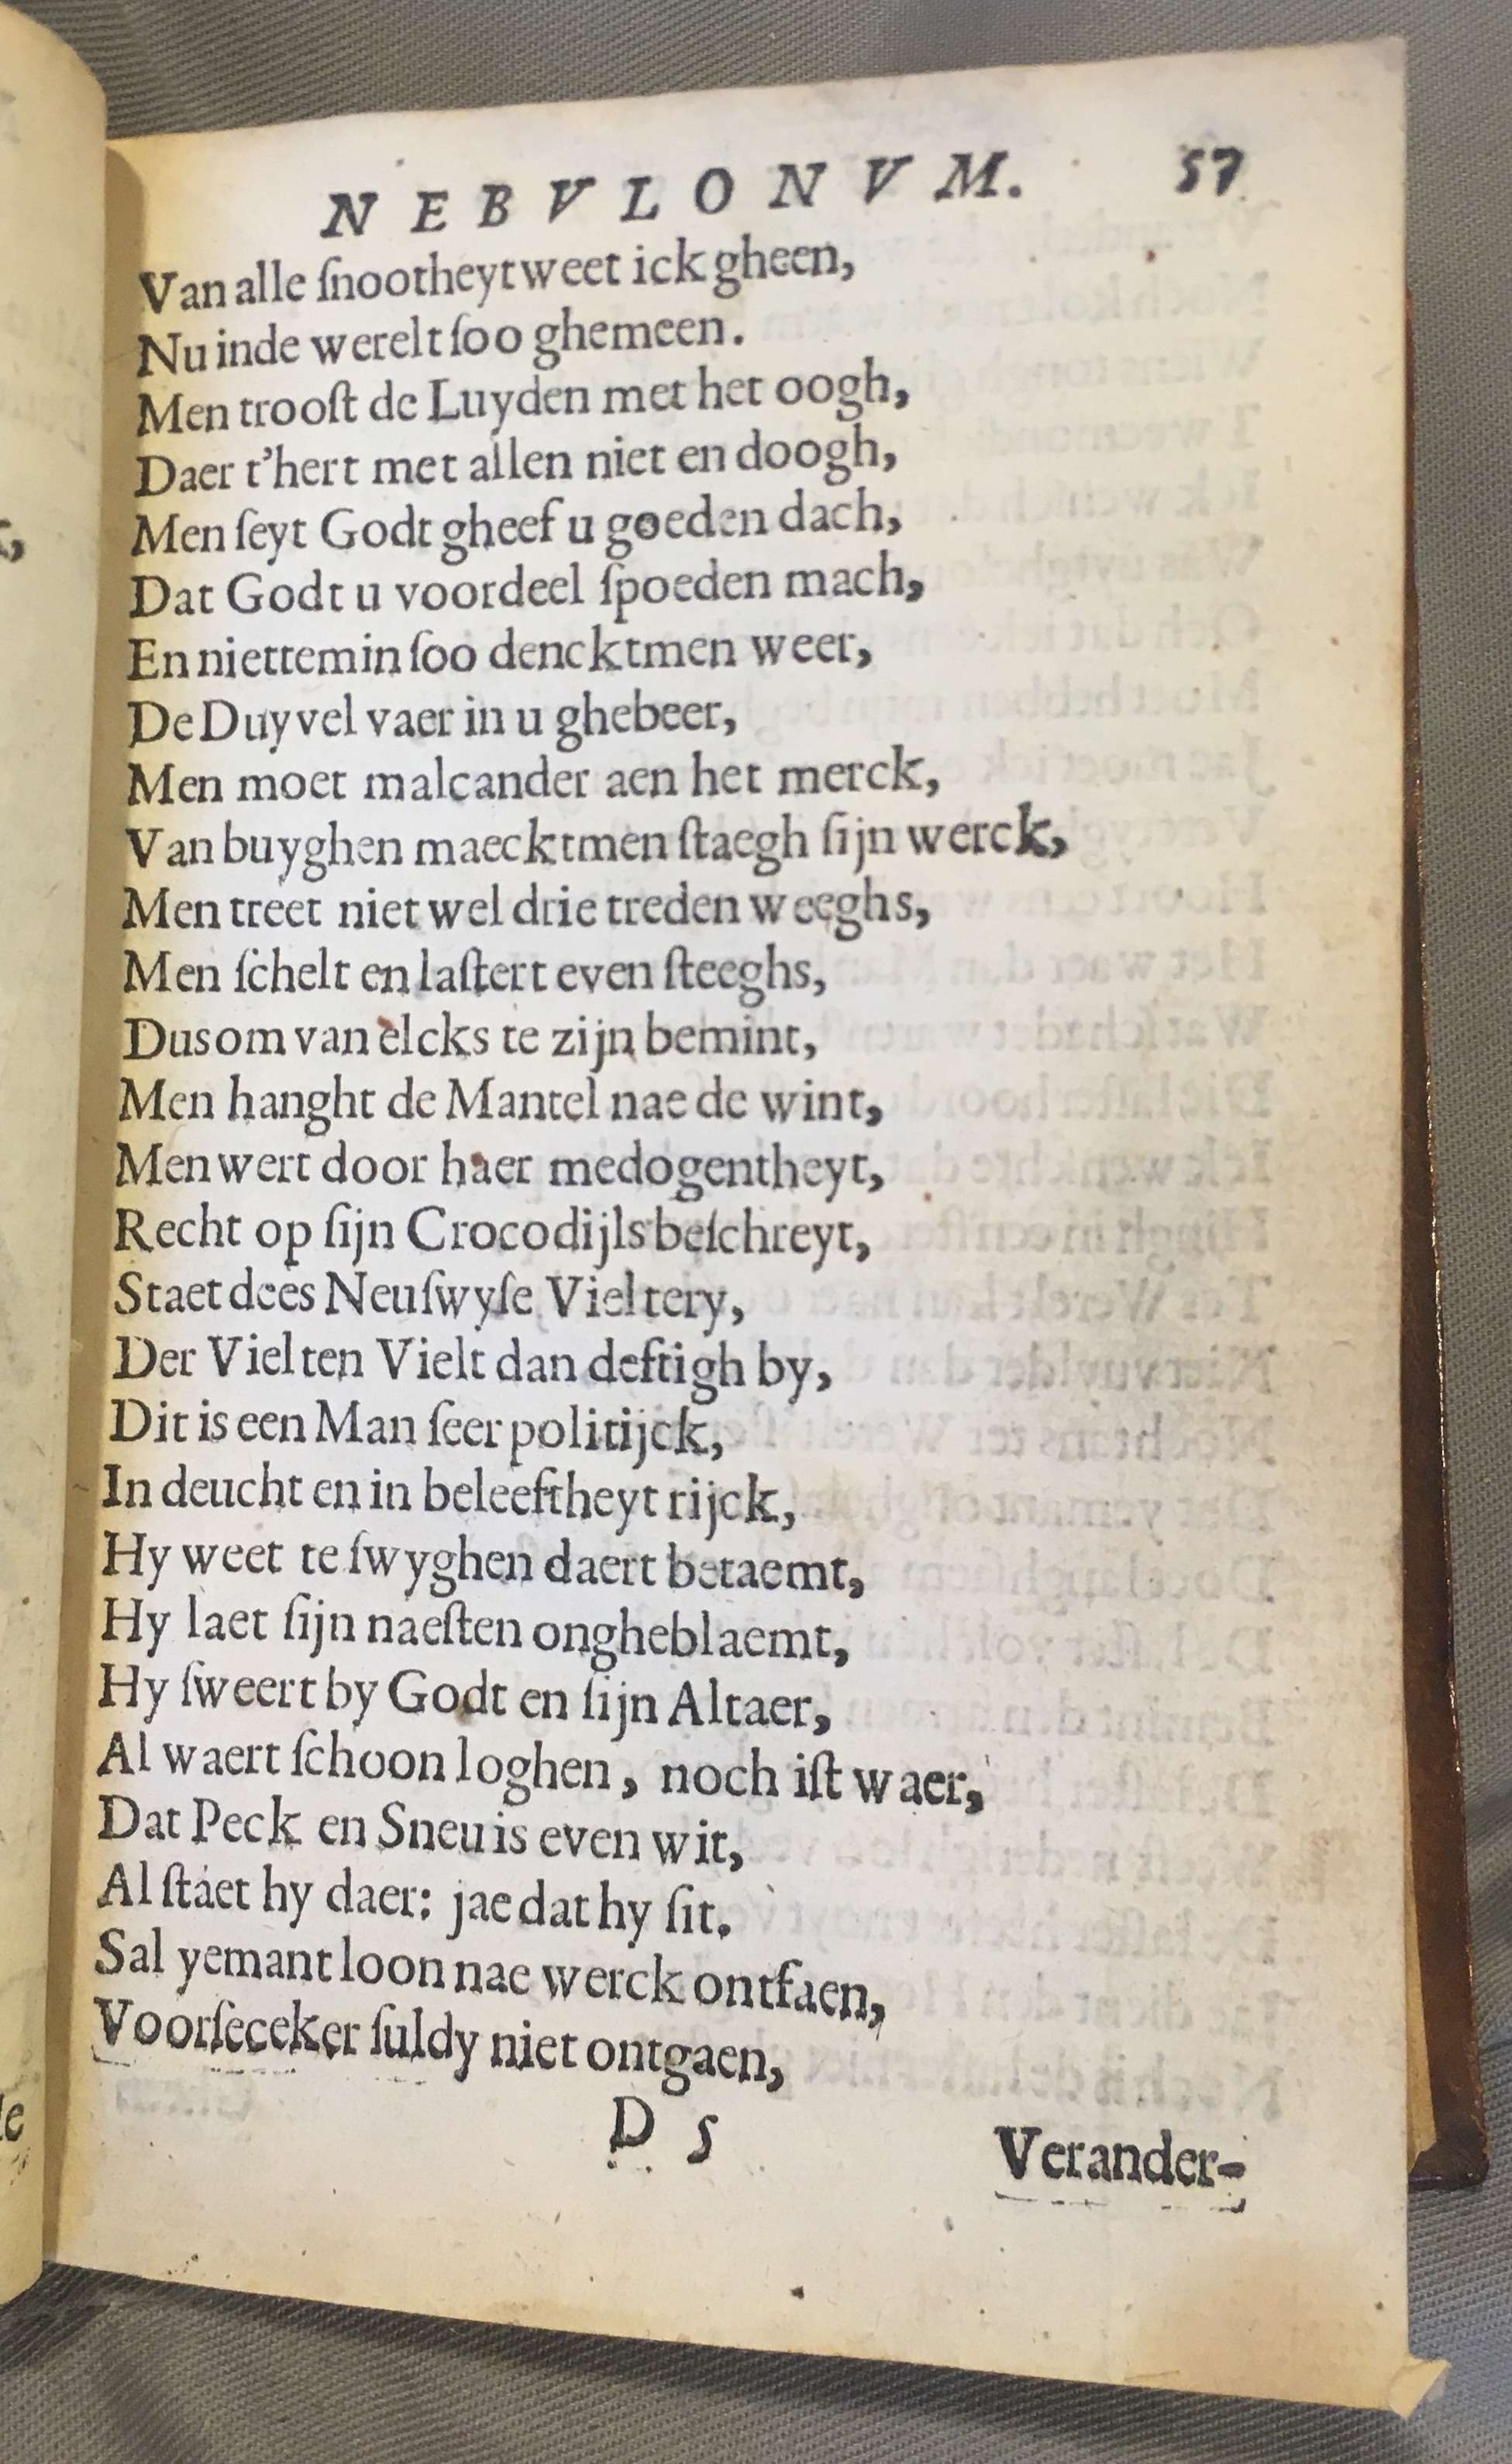 NEBVLONVM. 57
Van alle ſnootheyt weet ick gheen,
Nu inde werelt ſoo ghemeen.
Men trooſt de Luyden met het oogh,
Daer t'hert met allen niet en doogh,
Men ſeyt Godt gheef u goeden dach,
Dat Godt u voordeel ſpoeden mach,
En niettemin ſoo dencktmen weer,
De Duyvel vaer in u ghebeer,
Men moet malcander aen het merck,
Van buyghen maecktmen ſtaegh ſijn werck,
Men treet niet wel drie treden weeghs,
Men ſchelt en laſtert even ſteeghs,
Dus om van elcks te zijn bemint,
Men hanght de Mantel nae de wint,
Men wert door haer medogentheyt,
Recht op ſijn Crocodijls beſchreyt,
Staet dees Neuſwyſe Vieltery,
Der Vielten Vielt dan deftigh by,
Dit is een Man ſeer politijck,
In deucht en in beleeftheyt rijck,
Hy weet te ſwyghen daert betaemt,
Hy laet ſijn naeſten ongheblaemt,
Hy ſweert by Godt en ſijn Altaer,
Al waert ſchoon loghen, noch iſt waer,
Dat Peck en Sneu is even wit,
Al ſtaet hy daer: jae dat hy ſit.
Sal yemant loon nae werck ontfaen,
Voorſeceker ſuldy niet ontgaen,
D 5 Verander-